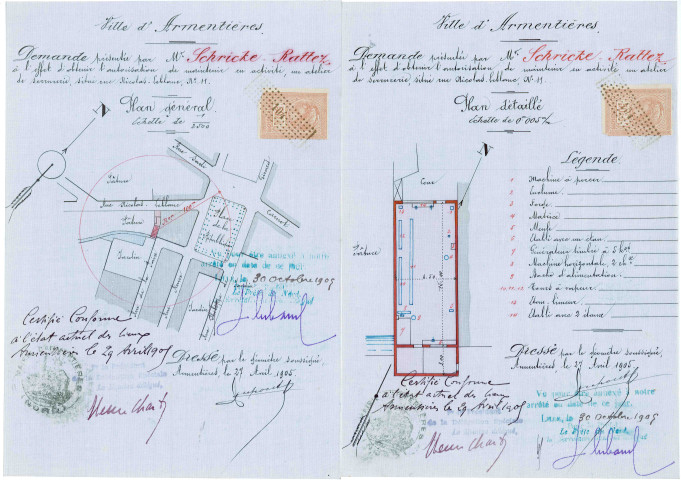 Ville d'Armentières.
Demande présentée par Mr Schricke-Rattez
à l'effet d'obtenir l'autorisation de maintenir en activité, un atelier
de serrurerie, situé rue Nicolas-Leblanc, N° 11.
Plan général
Échelle de 1/2500
N
Pature
Rue Nicolas Leblanc
Pature
Jardin
Jardin
100m
Place
de la
Vu pour être annexé à notre
arrêté en date de ce jour
Lille, le 30 Octobre 1905
Le Préfet du Nord,
Certifié Conforme
à l'état actuel des lieux
Armentières le 29 Avril 1905
Dressé par le géomètre soussigné,
Armentières, le 27 Avril 1905.
Ville d'Armentières.
Demande présentée par Mr Schricke-Rattez
à l'effet d'obtenir l'autorisation de maintenir en activité, un atelier
de serrurerie, situé rue Nicolas-Leblanc, N° 11.
Plan détaillé
Échelle de 0m005 p/m
N
Cour
Pature
Légende
1 Machine à percer
2 Enclume
3 Forge
4 Matrice
5 Meule
6 Etabli avec un étau
8 Machine horizontale, 2 chx
9 Bache d'alimentation
10.11.12 Tours à vapeur
13 Etau-limeur
14 Etabli avec 2 étaux
Dressé par le géomètre soussigné,
Armentières, le 27 Avril 1905.
Certifié Conforme
à l'état actuel des lieux
Armentières le 29 Avril 1905
Vu pour être annexé à notre
arrêté en date de ce jour
Lille, le 30 Octobre 1905
Le Préfet du Nord,